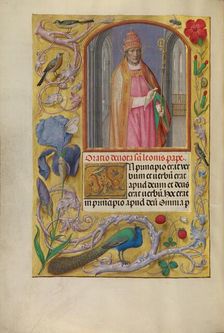 Oratio devota sã leonis pape.
IN principio erat ver
bum et verbũ erat
apud deum et deus
erat verbũ. hoc erat
in principio apud deũ Omnia p